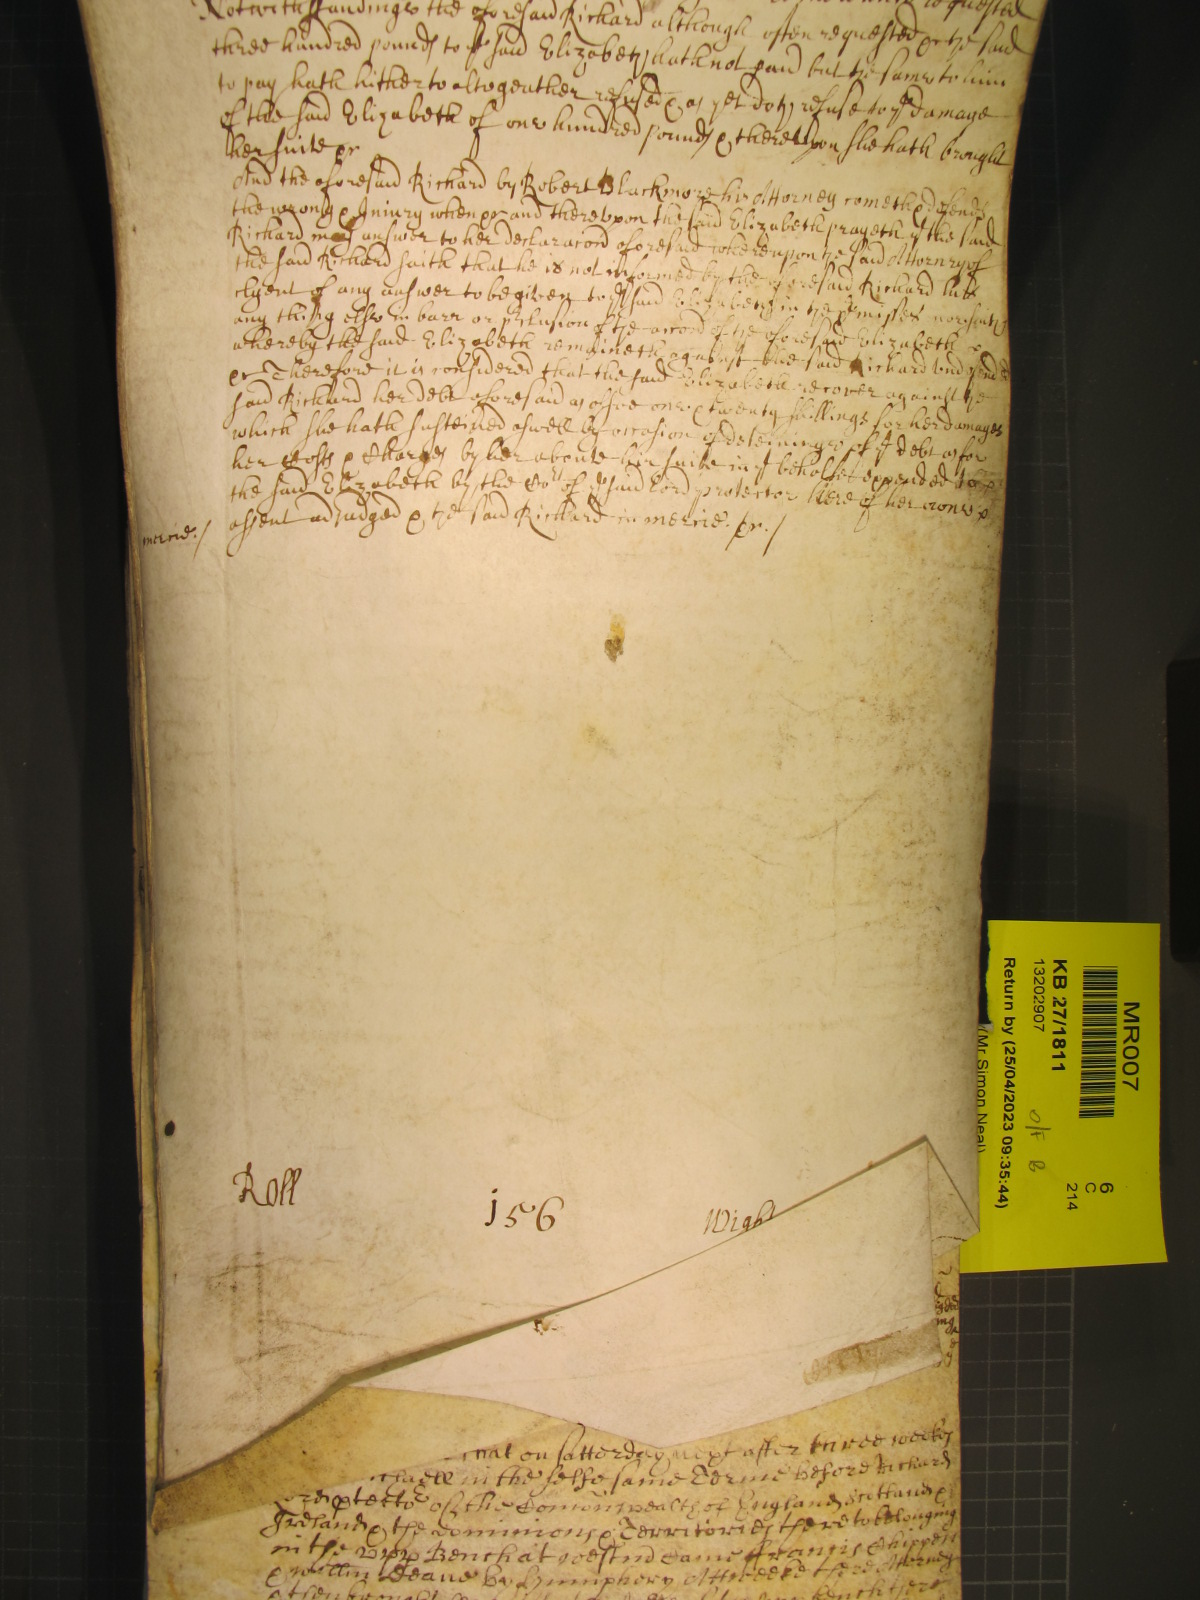 Notwithstandinge the aforesaid Richard although often requested
three hundred pounds to ye said Elizabeth hath not paid but the same to him
to pay hath hitherto altogeather refused & as yet doth refuse to ye damage
of the said Elizabeth of one hundred pounds & thereupon she hath brought
her suite &c
And the aforesaid Richard by Robert Blackmore his Attorney cometh & defends
the wrong & Iniury when &c and thereupon the said Elizabeth prayeth yt the said
Richard may answer to her declaracon aforesaid whereupon the said Attorney of
the said Richard saith that he is not informed by the aforesaid Richard his
clyent of any answer to be given to ye said Elizabeth in the p'misses nor saith
any thing else in barr or p'clusion of the accon of the aforesaid Elizabeth
whereby the said Elizabeth remaineth against the said Richard undefended
&c Therefore it is considered that the said Elizabeth recover against the
said Richard her debt aforesaid as alsoe one & twenty shillings for her damages
which she hath susteined aswell by occasion of deteininge of ye debt as for
her Costs & Charges by her aboute her suite in yt behalfe expended to
the said Elizabeth by the Cort of ye said Lord protector here of her owne
assent adjudged & the said Richard in mercie. &c./
mercie./
Roll
156
Wigh
MR007
KB 27/1811
13202907
Return by (25/04/2023 09:35:44)
(Mr Simon Neal)
6
C
214
that on Satterday next after three weekes
in the selfe same Terme before Richard
of the Comonwealth of England Scotland &
Ireland & the dominions & Territories thereto belonging
in the upp Bench at westm came Francis Chippen
& willm Deane by Humphery their Attorney